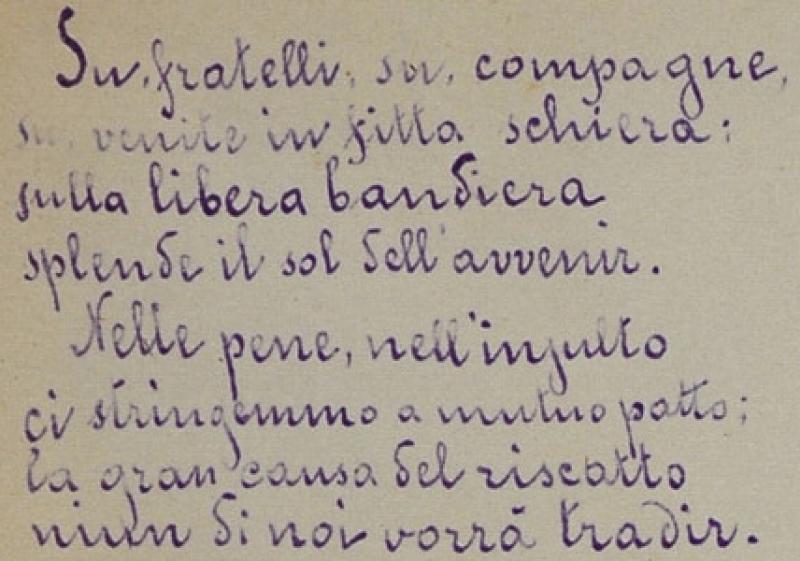 Su, fratelli, su, compagne,
su, venite in fitta schiera:
sulla libera bandiera
splende il sol dell'avvenir.
Nelle pene, nell'insulto
ci stringemmo a mutuo patto;
la gran causa del riscatto
niun di noi vorrà tradir.